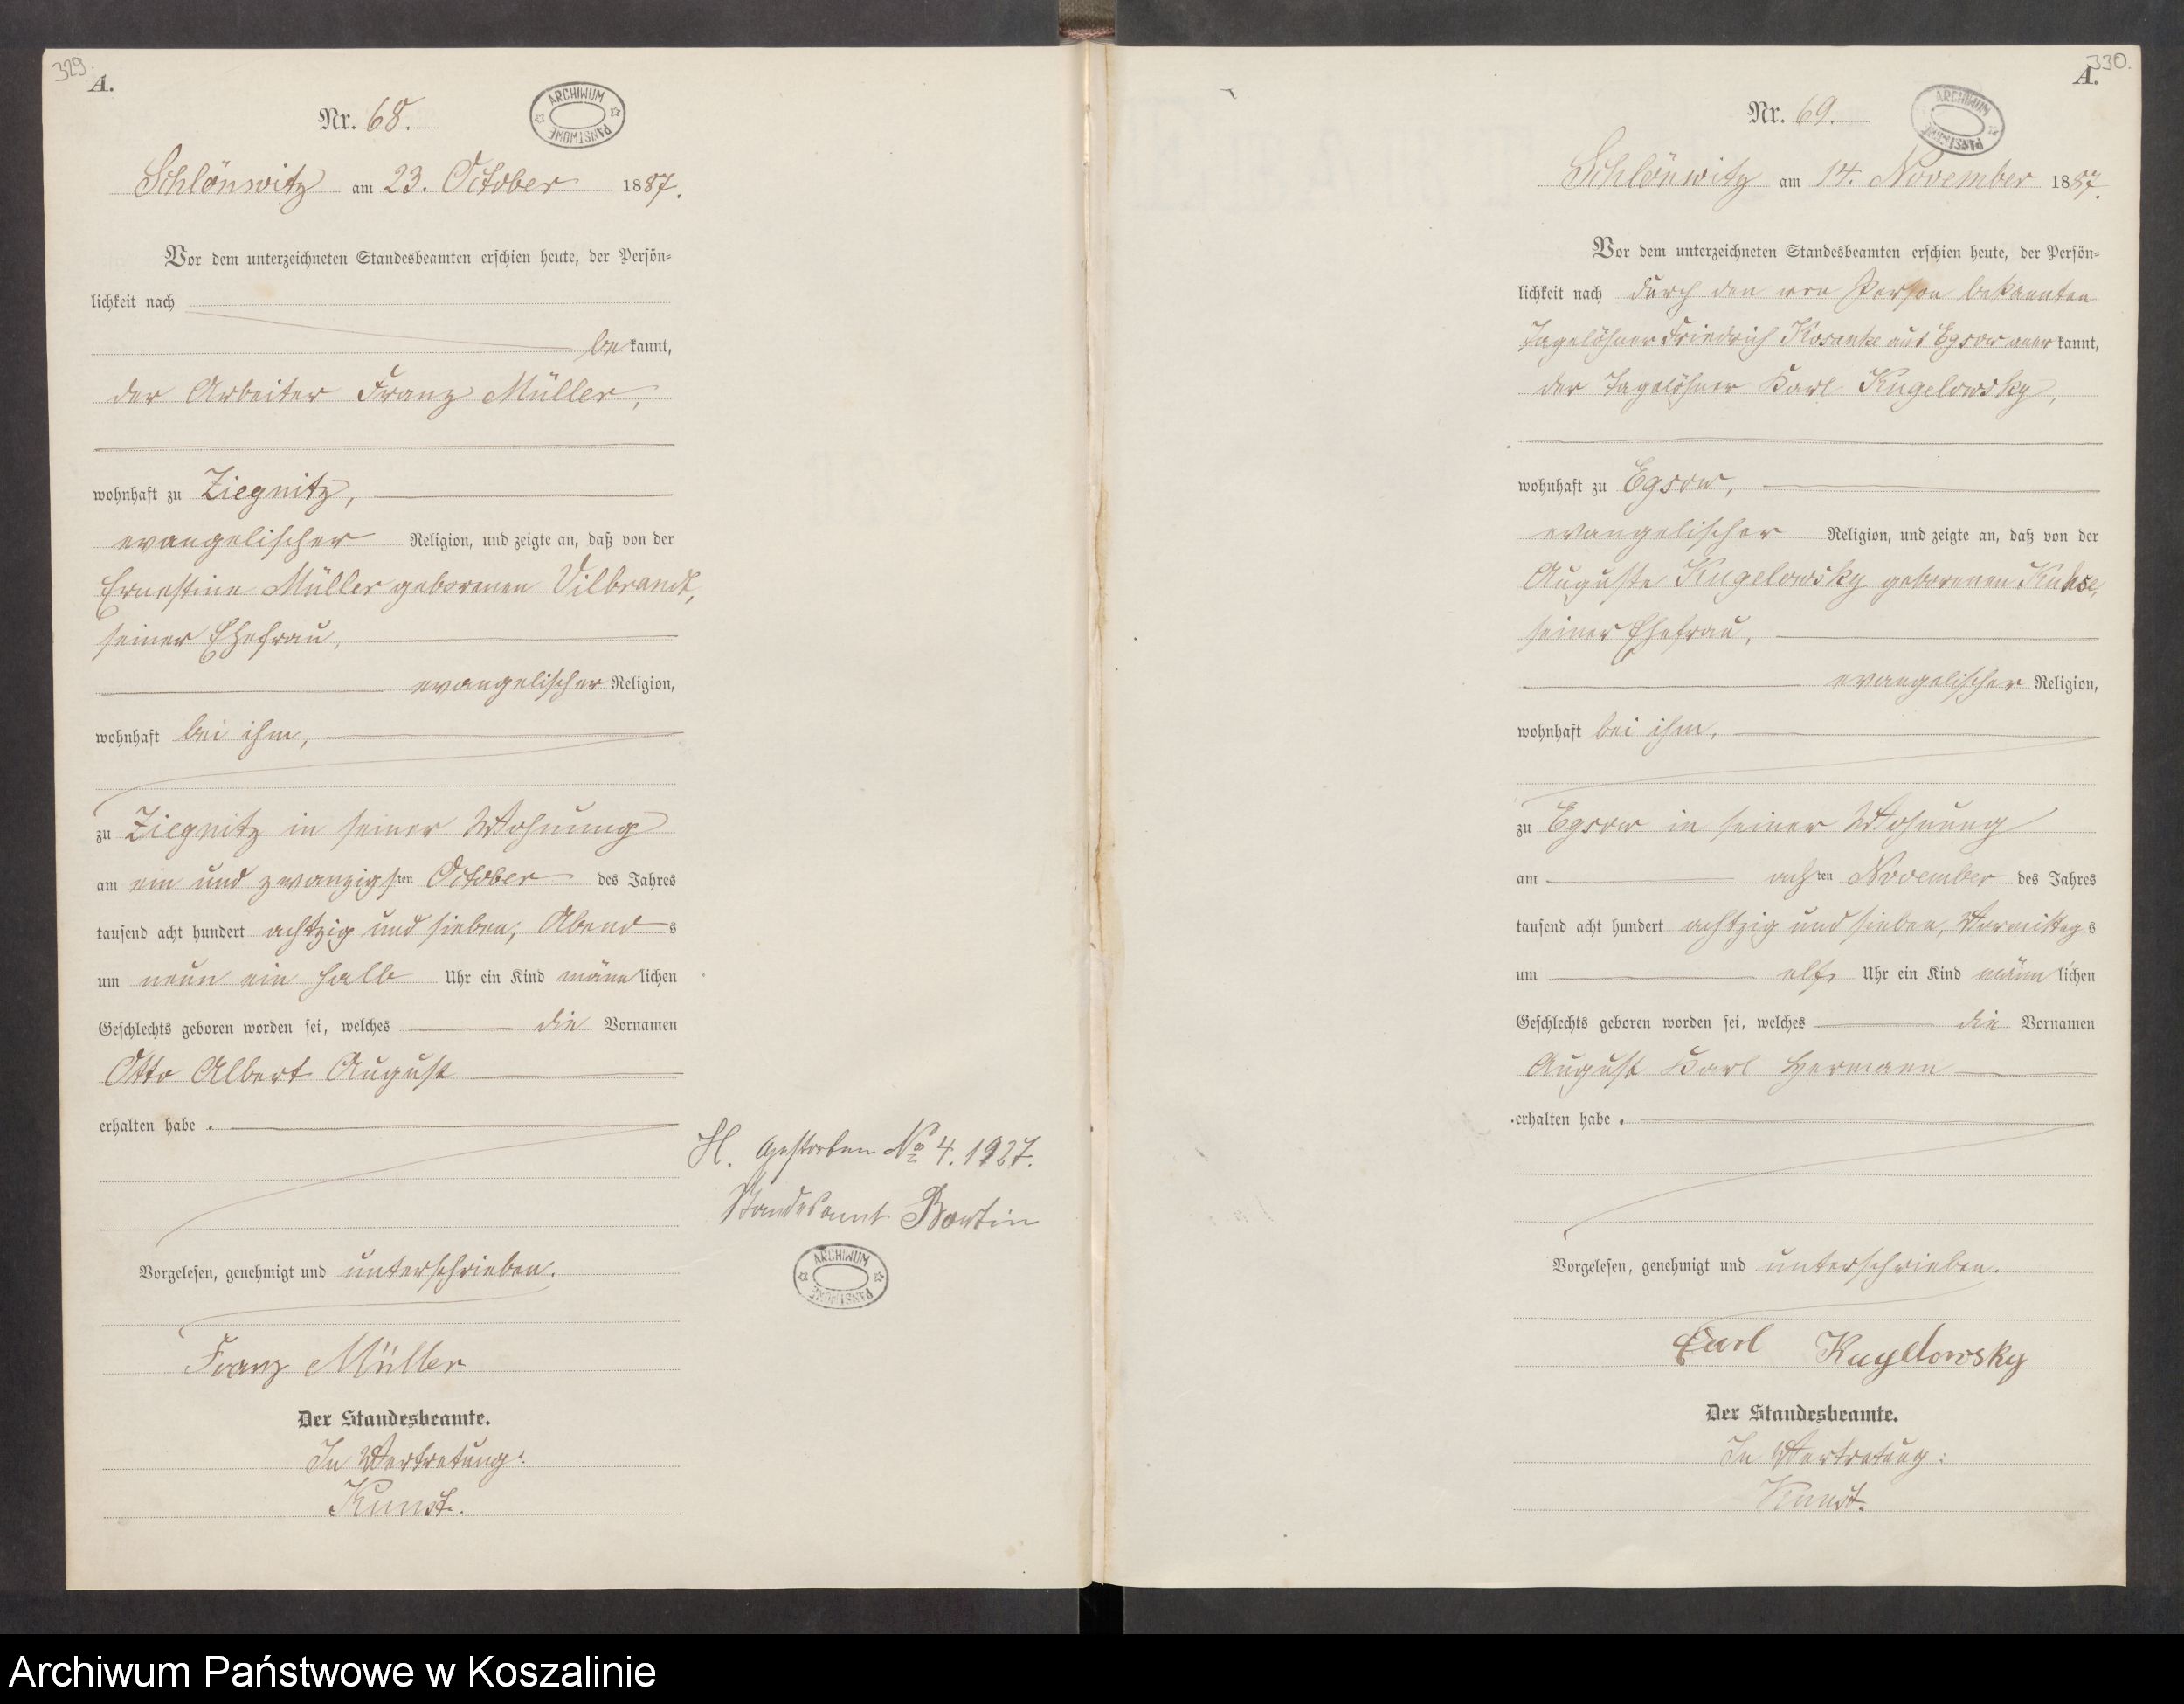 329.
A.
Nr. 68.
ARCHIWUM PAŃSTWOWE
Schlönwitz am 23. October 1887.
Vor dem unterzeichneten Standesbeamten erschien heute, der Persön-
lichkeit nach
be kannt,
der Arbeiter Franz Müller,
wohnhaft zu Ziegnitz,
evangelischer Religion, und zeigte an, daß von der
Ernestine Müller geborenen Vilbrandt,
seiner Ehefrau,
evangelischer Religion,
wohnhaft bei ihm,
zu Ziegnitz in seiner Wohnung
am ein und zwanzigsten October des Jahres
tausend acht hundert achtzig und sieben, Abend s
um neun ein halb Uhr ein Kind männ lichen
Geschlechts geboren worden sei, welches die Vornamen
Otto Albert August
erhalten habe.
H. Gestorben No 4. 1927.
Standesamt Bartin
ARCHIWUM PAŃSTWOWE
Vorgelesen, genehmigt und unterschrieben.
Franz Müller
Der Standesbeamte.
In Vertretung:
Kunst.
330.
A.
Nr. 69.
ARCHIWUM PAŃSTWOWE
Schlönwitz am 14. November 1887.
Vor dem unterzeichneten Standesbeamten erschien heute, der Persön-
lichkeit nach durch den von Person bekannten
Tagelöhner Friedrich Kosanke aus Egsow aner kannt,
der Tagelöhner Karl Kugelowsky,
wohnhaft zu Egsow,
evangelischer Religion, und zeigte an, daß von der
Auguste Kugelowsky geborenen
seiner Ehefrau,
evangelischer Religion,
wohnhaft bei ihm,
zu Egsow in seiner Wohnung
am achten November des Jahres
tausend acht hundert achtzig und sieben, Vormittag s
um elf Uhr ein Kind männ lichen
Geschlechts geboren worden sei, welches die Vornamen
August Karl Hermann
erhalten habe.
Vorgelesen, genehmigt und unterschrieben.
Carl Kugelowsky
Der Standesbeamte.
In Vertretung:
Kunst.
Archiwum Państwowe w Koszalinie